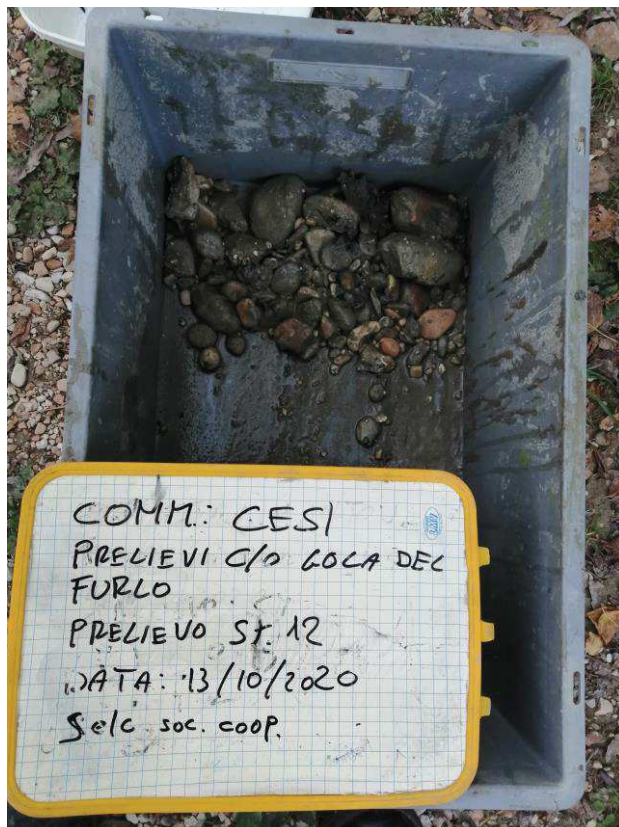 COMM.: CESI
PRELIEVI C/O GOLA DEL
FURLO
PRELIEVO St. 12
DATA: 13/10/2020
Selc soc. coop.